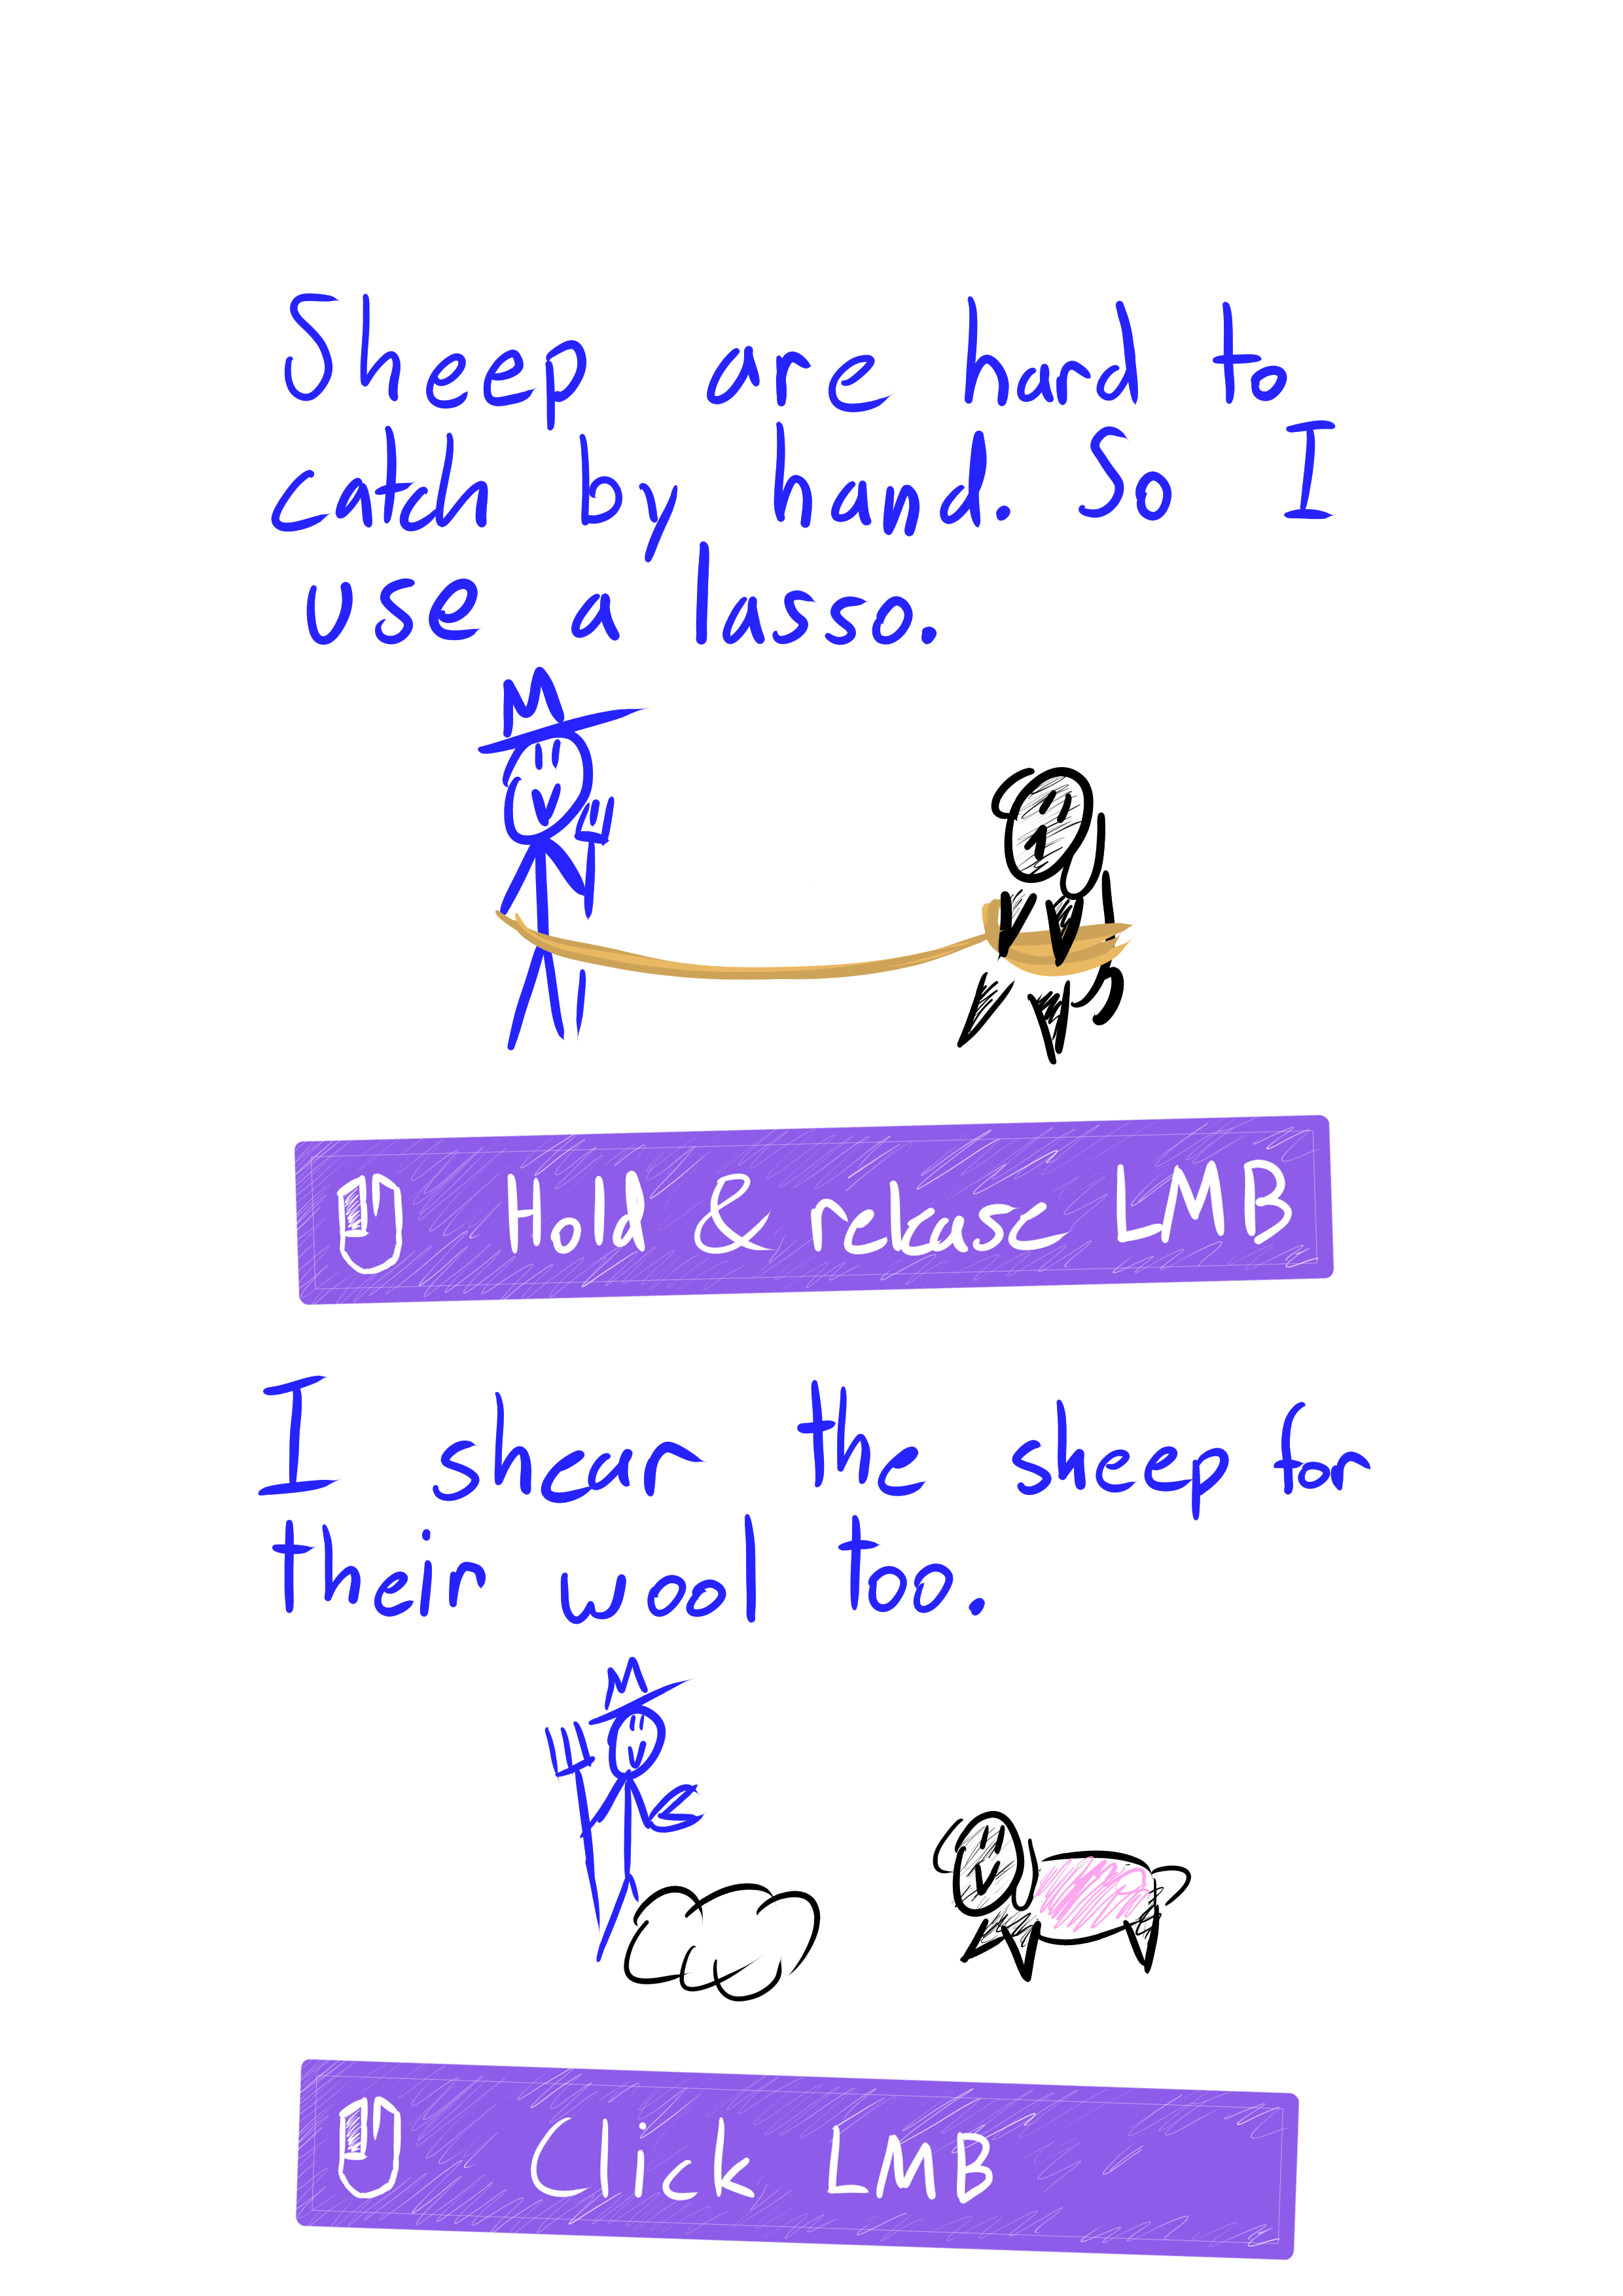 Sheep are hard to
catch by hand. So I
use a lasso.
Hold & release LMB
I shear the sheep for
their wool too.
Click LMB